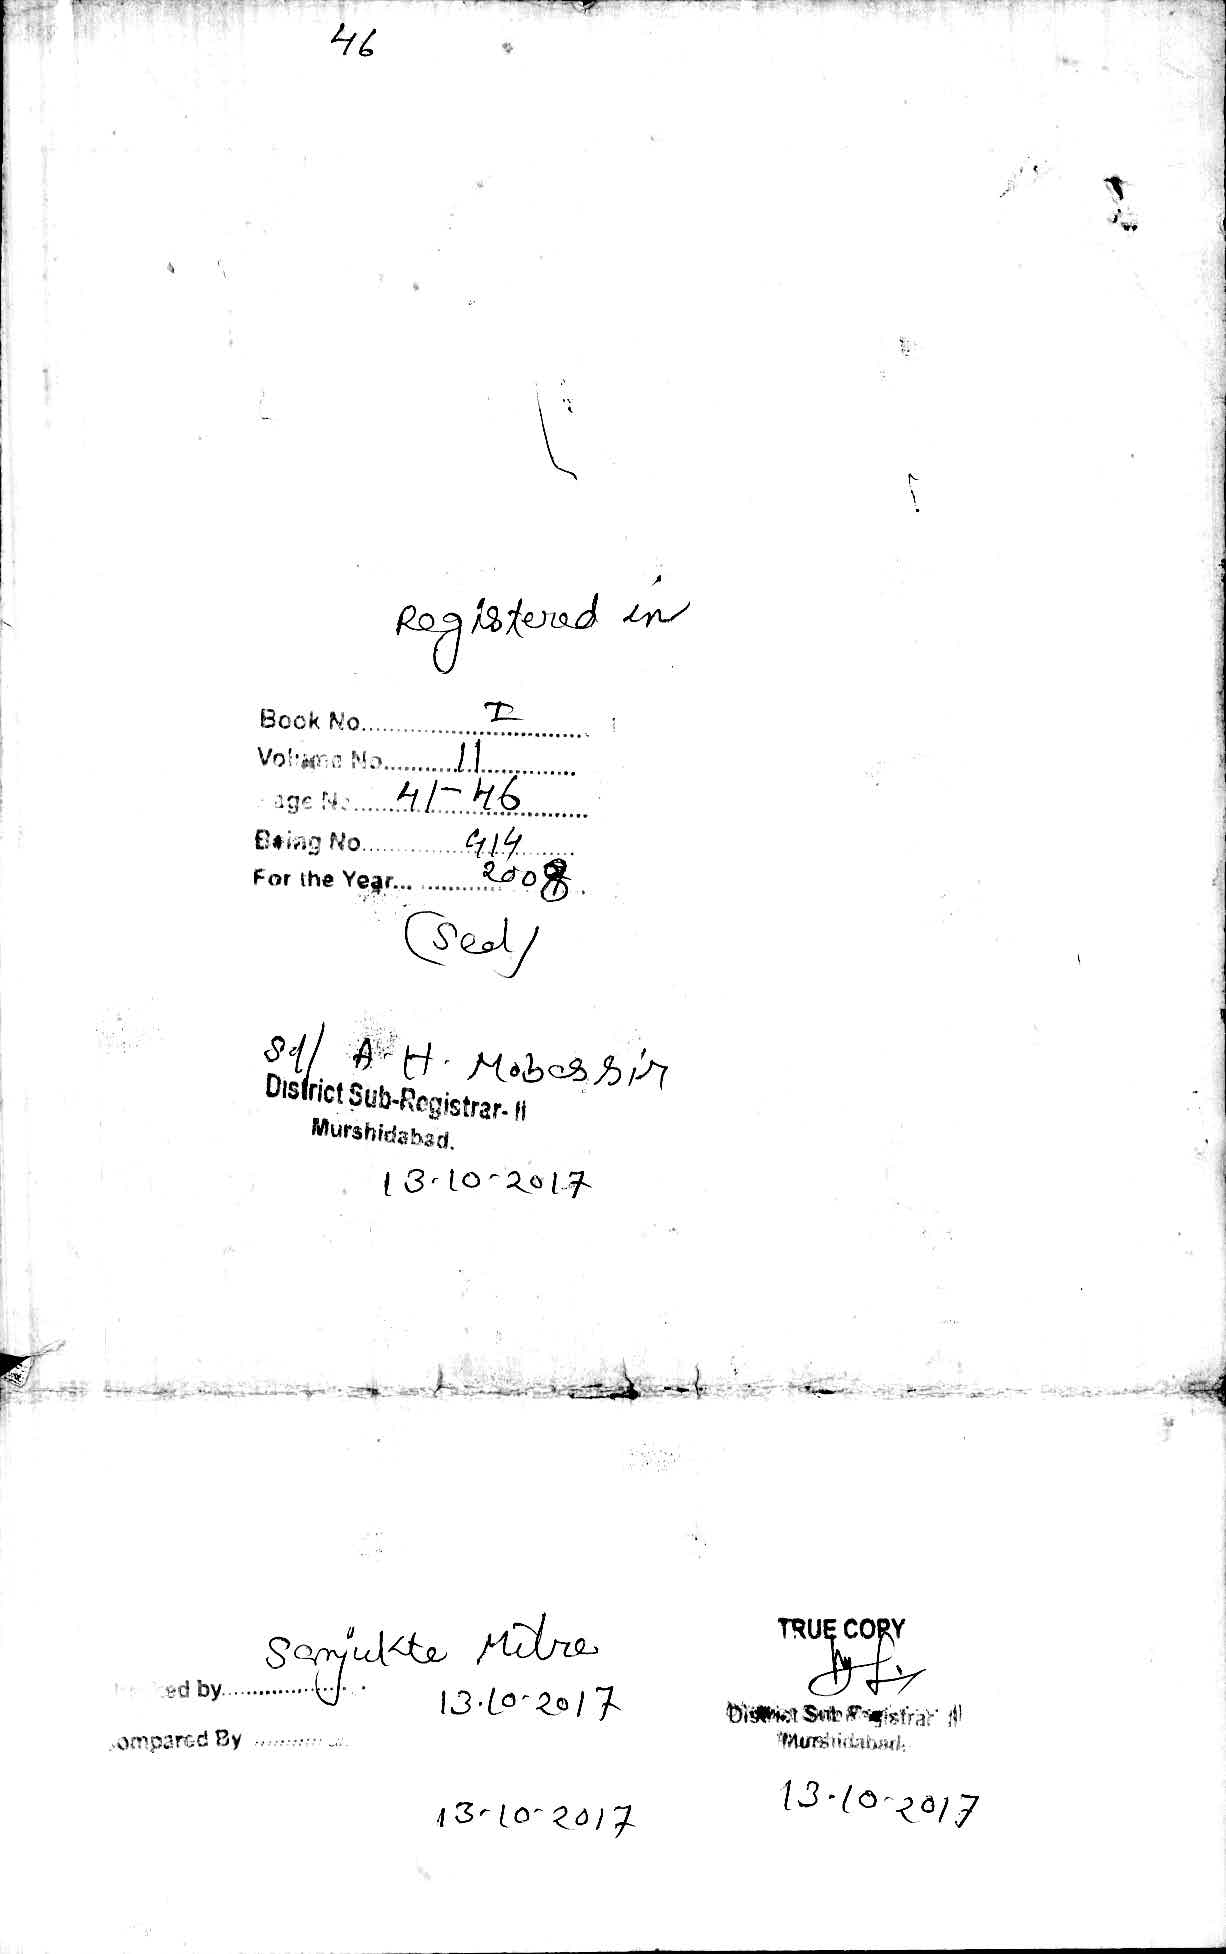 46
Registered in
Book No. I
Volume No. 11
age No. 41-46
Being No. 414
For the Year... 2008
(Seal)
Sd/ A. H. Mobassir
District Sub-Registrar- II
Murshidabad.
13-10-2017
Sanjukta Mitra
TRUE COPY
ed by
13.10-2017
District Sub Registrar II
Murshidabad.
ompared By
13-10-2017
13-10-2017